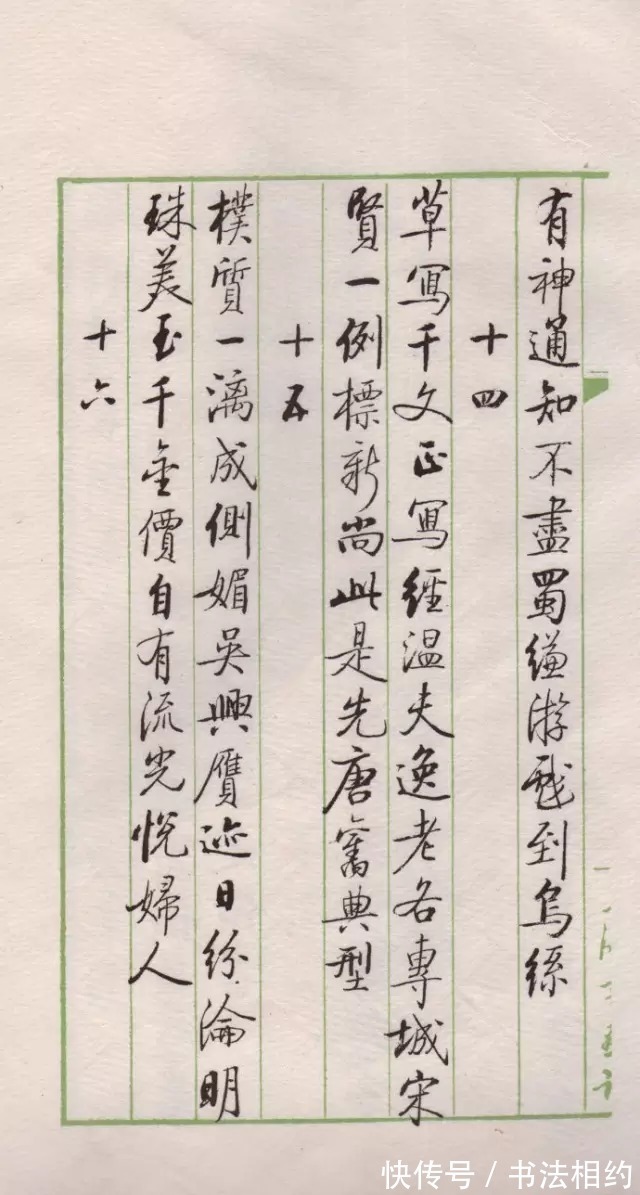 有神通知不盡蜀縑游戲到烏絲
十四
草寫千文正寫經温夫逸老各專城宋
賢一例標新尚此是先唐舊典型
十五
樸質一漓成側媚吳興贗迹日紛淪明
珠美玉千金價自有流光悅婦人
十六
快传号/书法相约